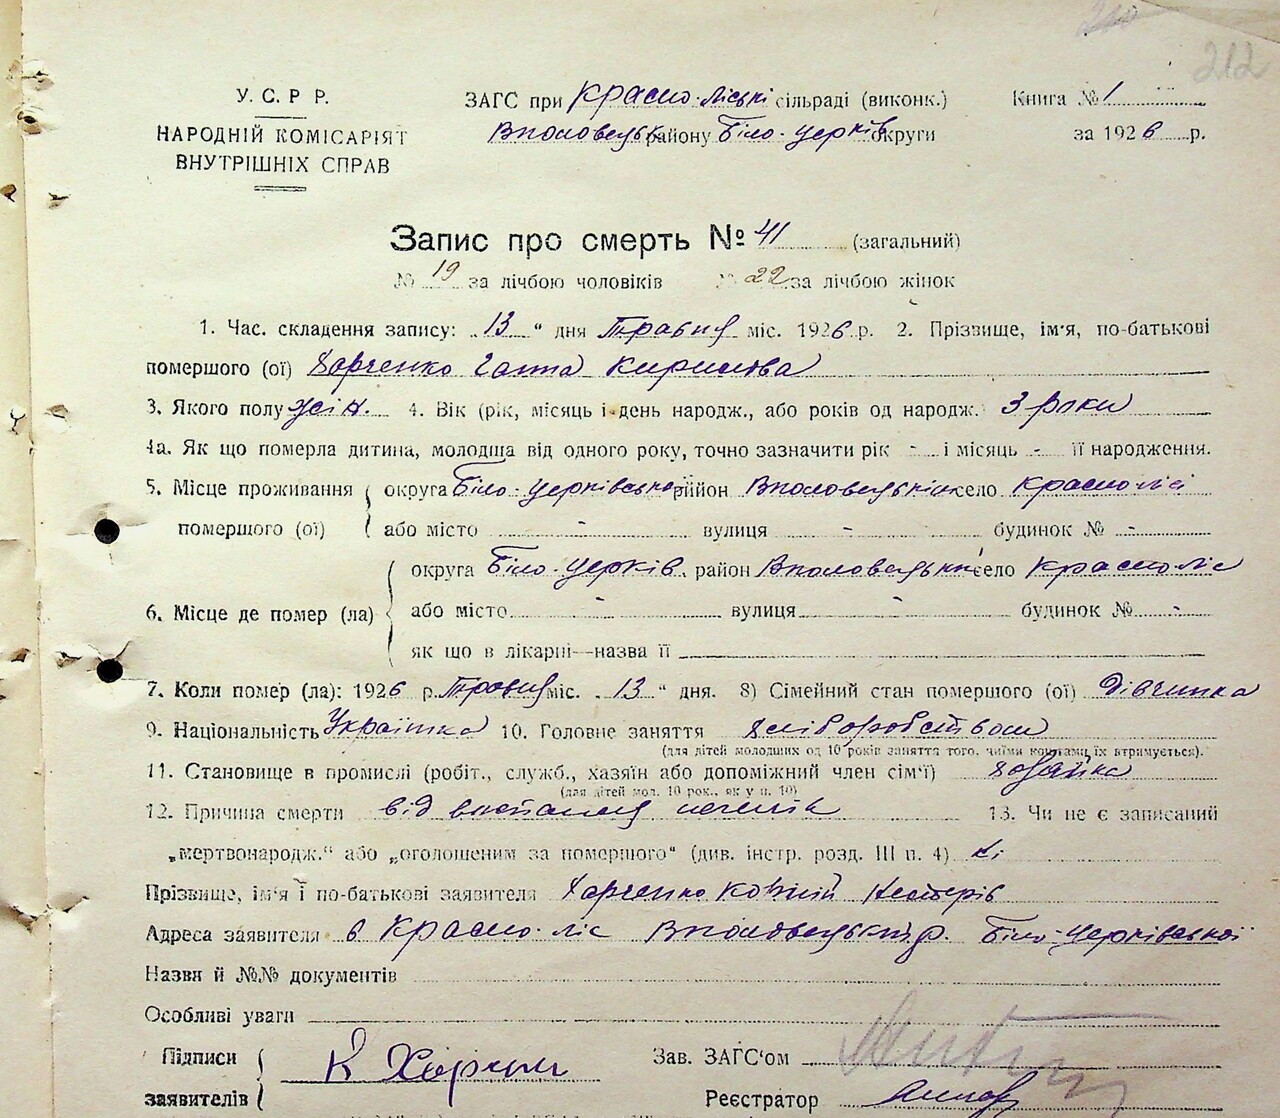 212
У. С. Р Р.
НАРОДНІЙ КОМІСАРІЯТ
ВНУТРІШНІХ СПРАВ
ЗАГС при Красно-ліські сільраді (виконк.)
району Біло-Церків округи
Книга № 1
за 1926 р.
Запис про смерть № 41 (загальний)
№ 19 за лічбою чоловіків № 22 за лічбою жінок
1. Час. складення запису: „13" дня Травня міс. 1926 р. 2. Прізвище, ім'я, по-батькові
помершого (ої) Харченко Ганна Кирилова
3. Якого полу жін. 4. Вік (рік, місяць і день народж., або років од народж. 3 роки
4а. Як що померла дитина, молодша від одного року, точно зазначити рік - і місяць - її народження.
5. Місце проживання помершого (ої) округа Біло-Церківської район село Красноліс
або місто - вулиця - будинок № -
6. Місце де помер (ла) округа Біло-Церків. район село Красноліс
або місто - вулиця - будинок № -
як що в лікарні—назва її
7. Коли помер (ла): 1926 р. Травня міс. „13" дня. 8) Сімейний стан помершого (ої) Дівчинка
9. Національність Українка 10. Головне заняття Хліборобством
(для дітей молодших од 10 років заняття того, чиїми коштами їх втримується).
11. Становище в промислі (робіт., служб., хазяїн або допоміжний член сім'ї) хазяйка
(для дітей мол. 10 рок., як у п. 10)
12. Причина смерти від 13. Чи не є записаний
„мертвонародж." або „оголошеним за помершого" (див. інстр. розд. III п. 4) ні
Прізвище, ім'я ї по-батькові заявителя Харченко Нестерів
Адреса заявителя в Красно-ліс р. Біло-Церківської
Назви й №№ документів
Особливі уваги
Підписи заявителів К Харчен
Зав. ЗАГС'ом
Реєстратор